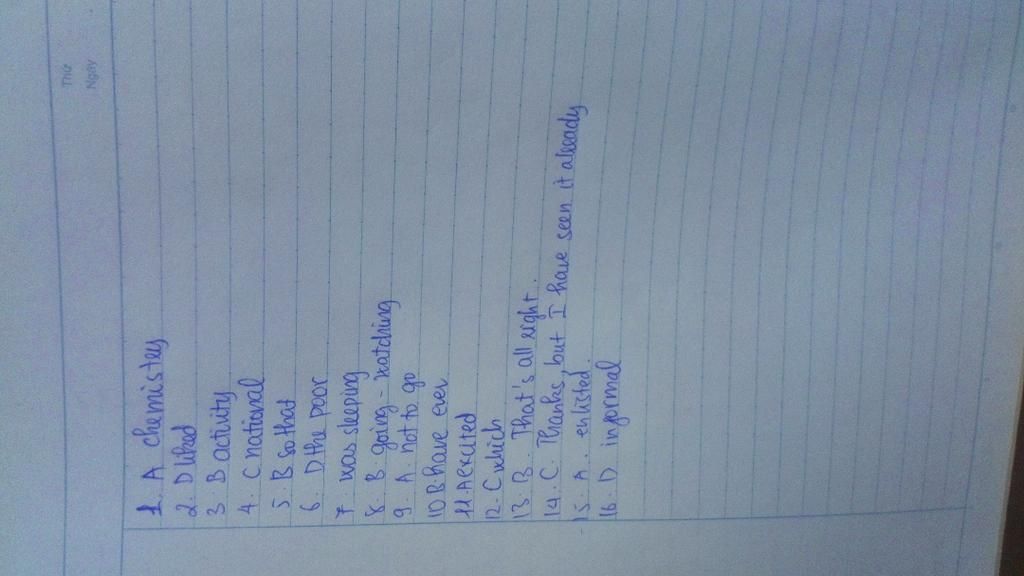 Thứ
Ngày
1. A chemistry
2. D liked
3. B activity
4. C national
5. B So that
6. D the poor
7. was sleeping
8. B. going - watching
9. A. not to go
10 B. have ever
11. A excited
12. C which
13. B. That's all right..
14. C. Thanks, but I have seen it already
15. A. enlisted.
16. D informal